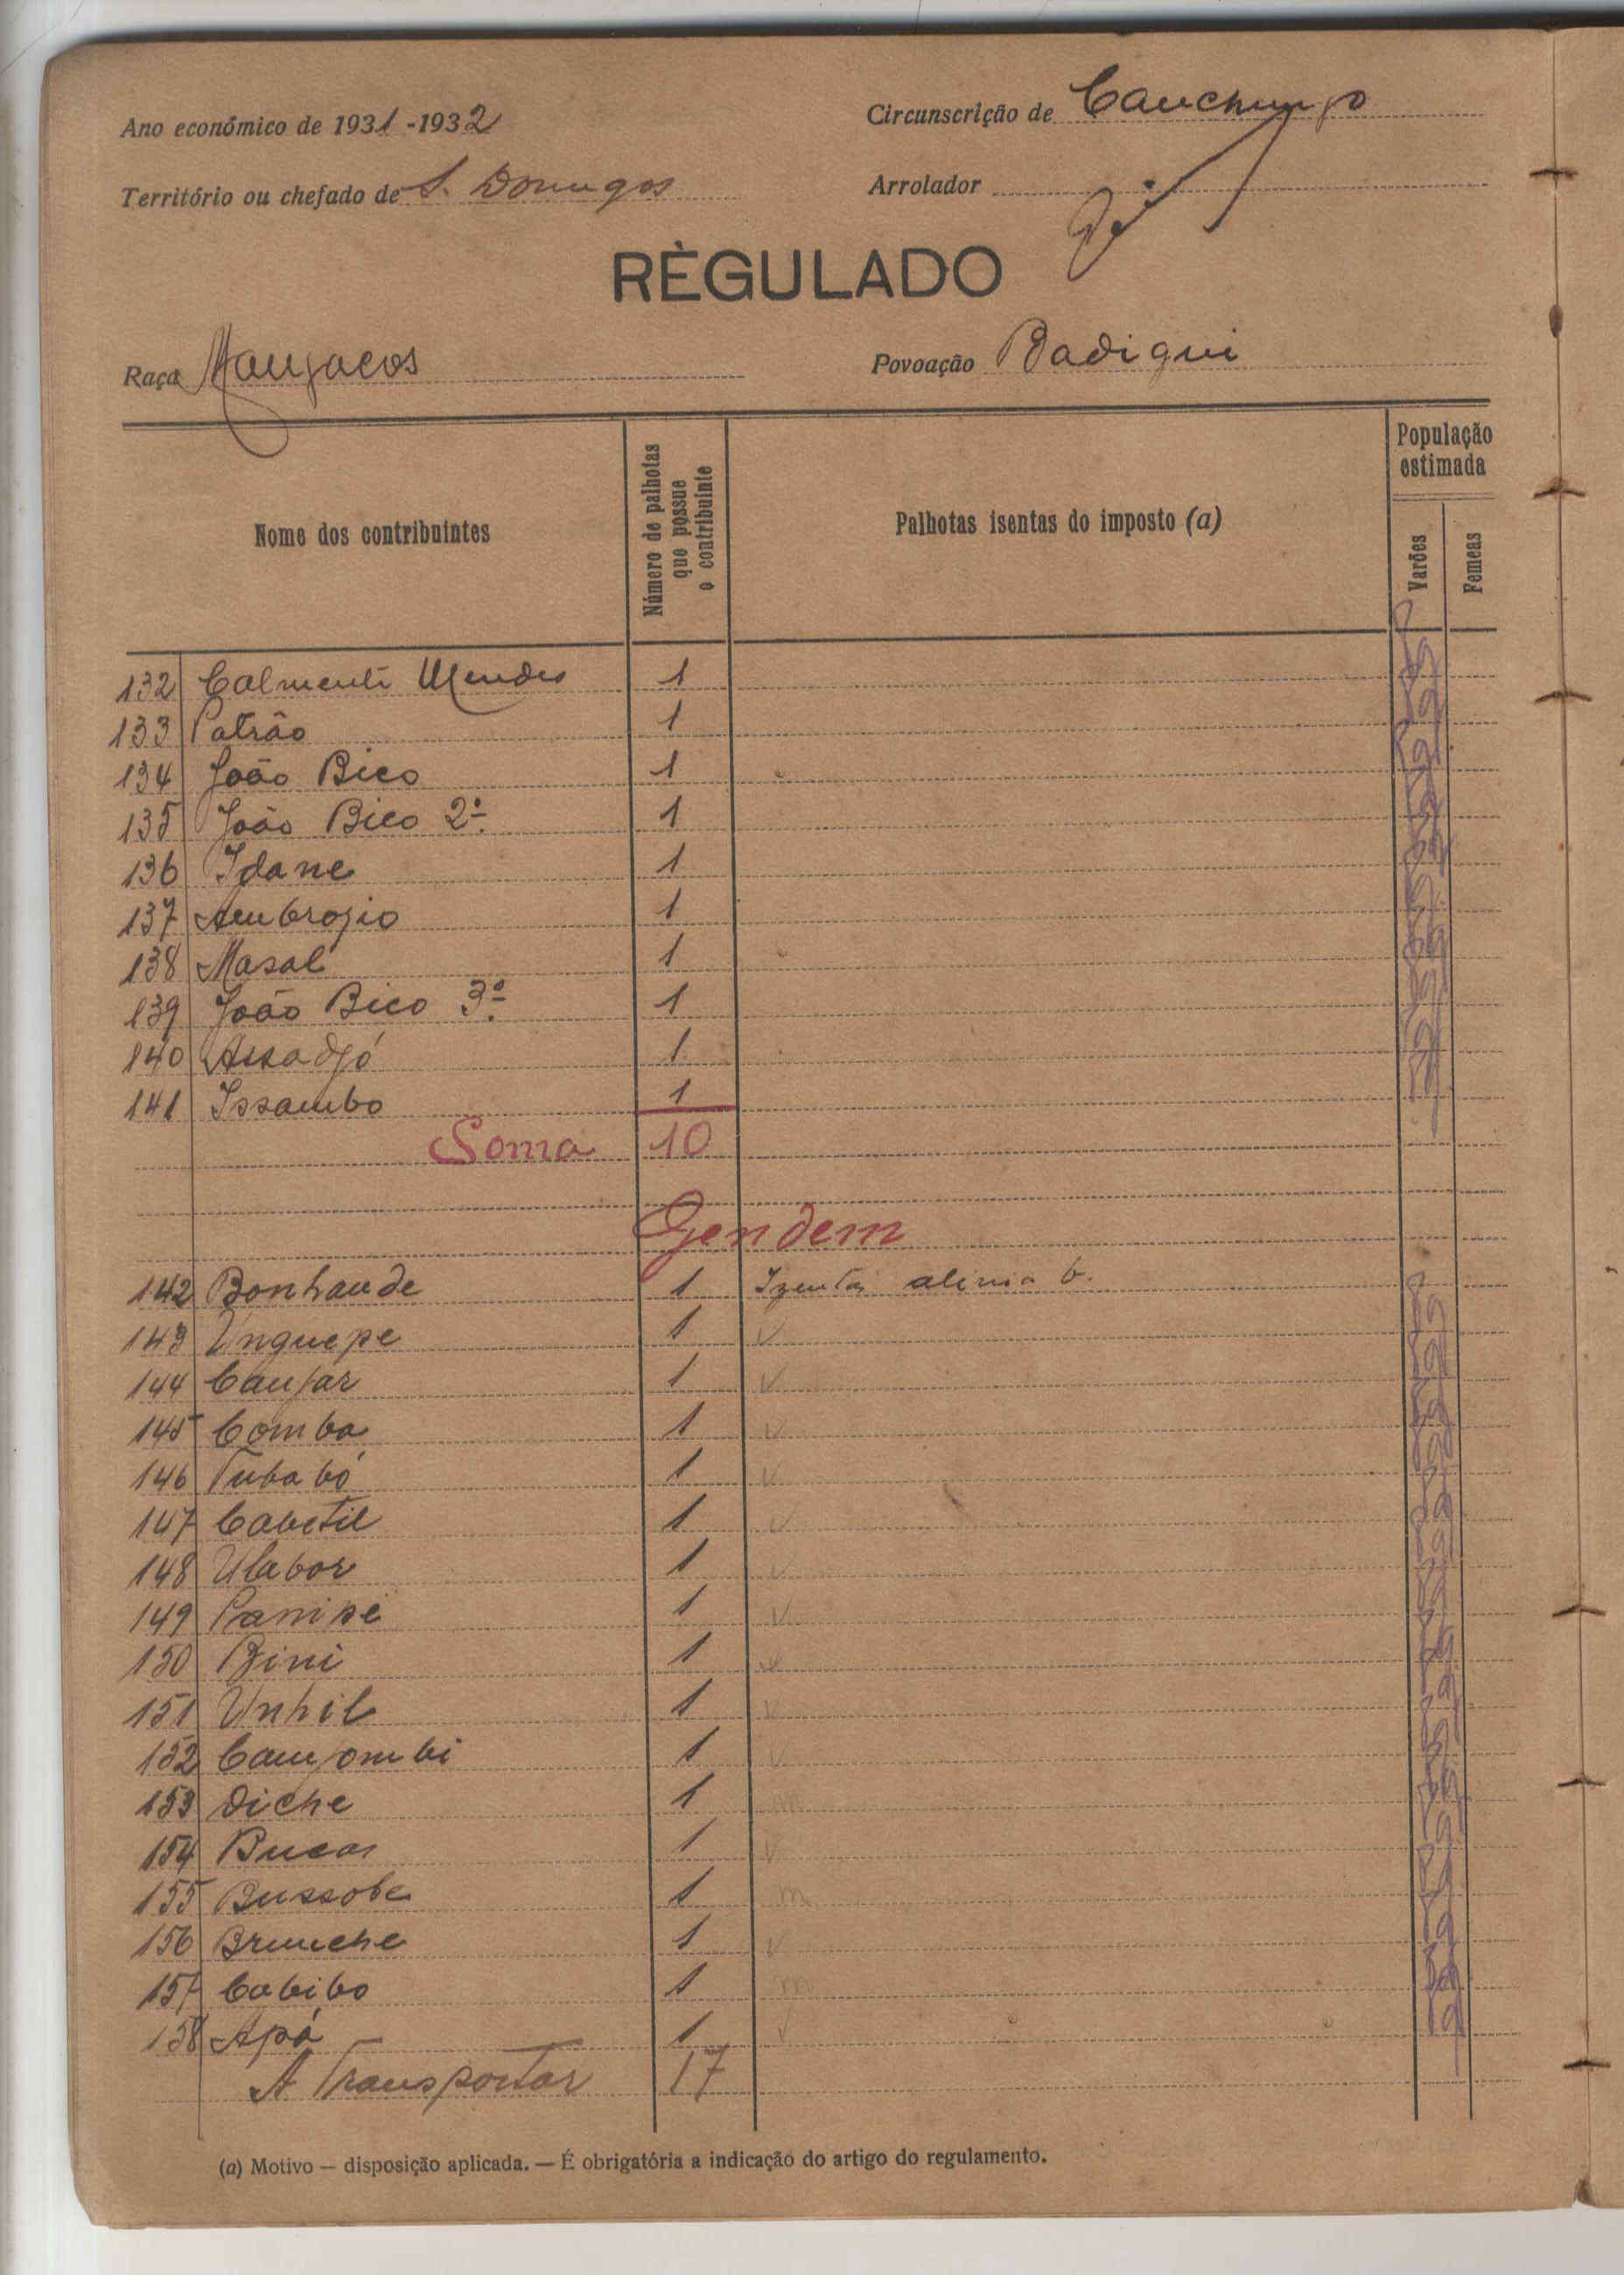 Ano económico de 1931-1932
Circunscrição de Canchungo
Território ou chefado de S. Domingos
Arrolador
RÈGULADO
Raça Manjacos
Povoação Badiqui
Nome dos contribuintes
Número de palhotas que possue o contribuinte
Palhotas isentas do imposto (a)
População estimada
Varões
Femeas
132 Calmenti Mendes 1
133 Patrão 1
134 João Bico 1
135 João Bico 2º 1
136 Idane 1
137 Ambrozio 1
138 Masal 1
139 João Bico 3º 1
140 Assadjó 1
141 Issambo 1
Soma 10
Gendem
142 Bonhande 1 Izenta alinia b.
143 Unguepe 1
144 Canjar 1
145 Comba 1
146 Tubabó 1
147 Cabetil 1
148 Ulabor 1
149 Panipe 1
150 Bini 1
151 Unhil 1
152 Canjombi 1
153 Diche 1
154 Bucar 1
155 Bussobe 1
156 Brunche 1
157 Cabibo 1
158 Apá 1
A Transportar 17
(a) Motivo — disposição aplicada. — É obrigatória a indicação do artigo do regulamento.